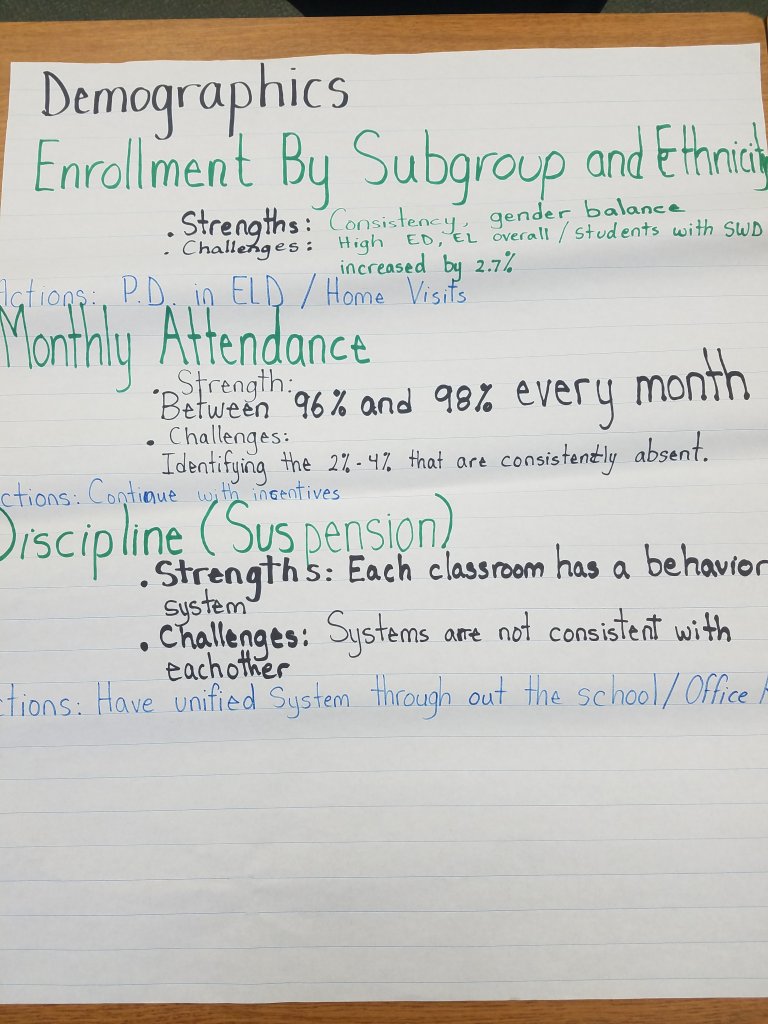 Demographics
Enrollment By Subgroup and Ethnicity
. Strengths: Consistency, gender balance
. Challenges: High ED, EL overall / Students with SWD
increased by 2.7%
Actions: P.D. in ELD / Home Visits
Monthly Attendance
. Strength:
Between 96% and 98% every month
. Challenges:
Identifying the 2%-4% that are consistently absent.
ctions: Continue with incentives
Discipline (Suspension)
. Strengths: Each classroom has a behavior
system
. Challenges: Systems are not consistent with
eachother
ctions: Have unified System through out the school/Office